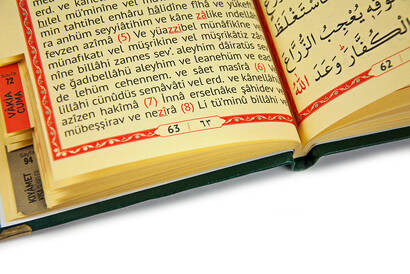 min tahtihel enhâru hâlidîne fîhâ ve yükef
ra anhüm seyyiâtihim ve kâne zâlike
fevzen azîmâ (5) Ve yüazzibel münâfikîne
münâfikâti vel müşrikîne
nîne billâhi zannes sev', aleyhim dâiratüs sev
ve ğadıbellâhü aleyhim ve leanehüm ve ead
de lehüm cehennem, ve sâet masîrâ (6) Ve
lillâhi cünûdüs semâvâti vel erd, ve kânellâhü
azîzen hakîmâ (7) İnnâ erselnâke şâhidev ve
mübeşşirav ve nezîrâ (8) Li tü'minû billâhi
63 ٦٣
VAKIA
CUMA
72
KIYAMET
فَاسْتَغْلَظَ
سُوقِهِ يُعْجِبُ الزُّرَّاعَ
الْكُفَّارَ وَعَدَ اللّٰهُ
62